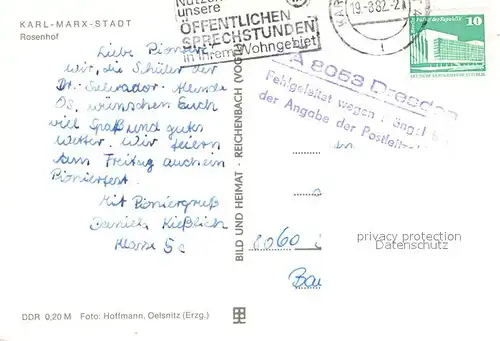 KARL-MARX-STADT
Rosenhof
Liebe Pioniere
wir, die Schüler der
Dr.-Salvador-Allende
OS, wünschen Euch
viel Spaß und gutes
Wetter. Wir feiern
am Freitag auch ein
Pionierfest.
Mit Pioniergruß
Daniela Kießlich
Klasse 5c
DDR 0,20 M Foto: Hoffmann, Oelsnitz (Erzg.)
BILD UND HEIMAT · REICHENBACH (VOGTL
Nutzen
unsere
ÖFFENTLICHEN
SPRECHSTUNDEN
in Ihrem Wohngebiet
19-8.82-2
10
A 8053 Dresden
Fehlgeleitet wegen
der Angabe der Postleitz
8060
privacy protection
Datenschutz